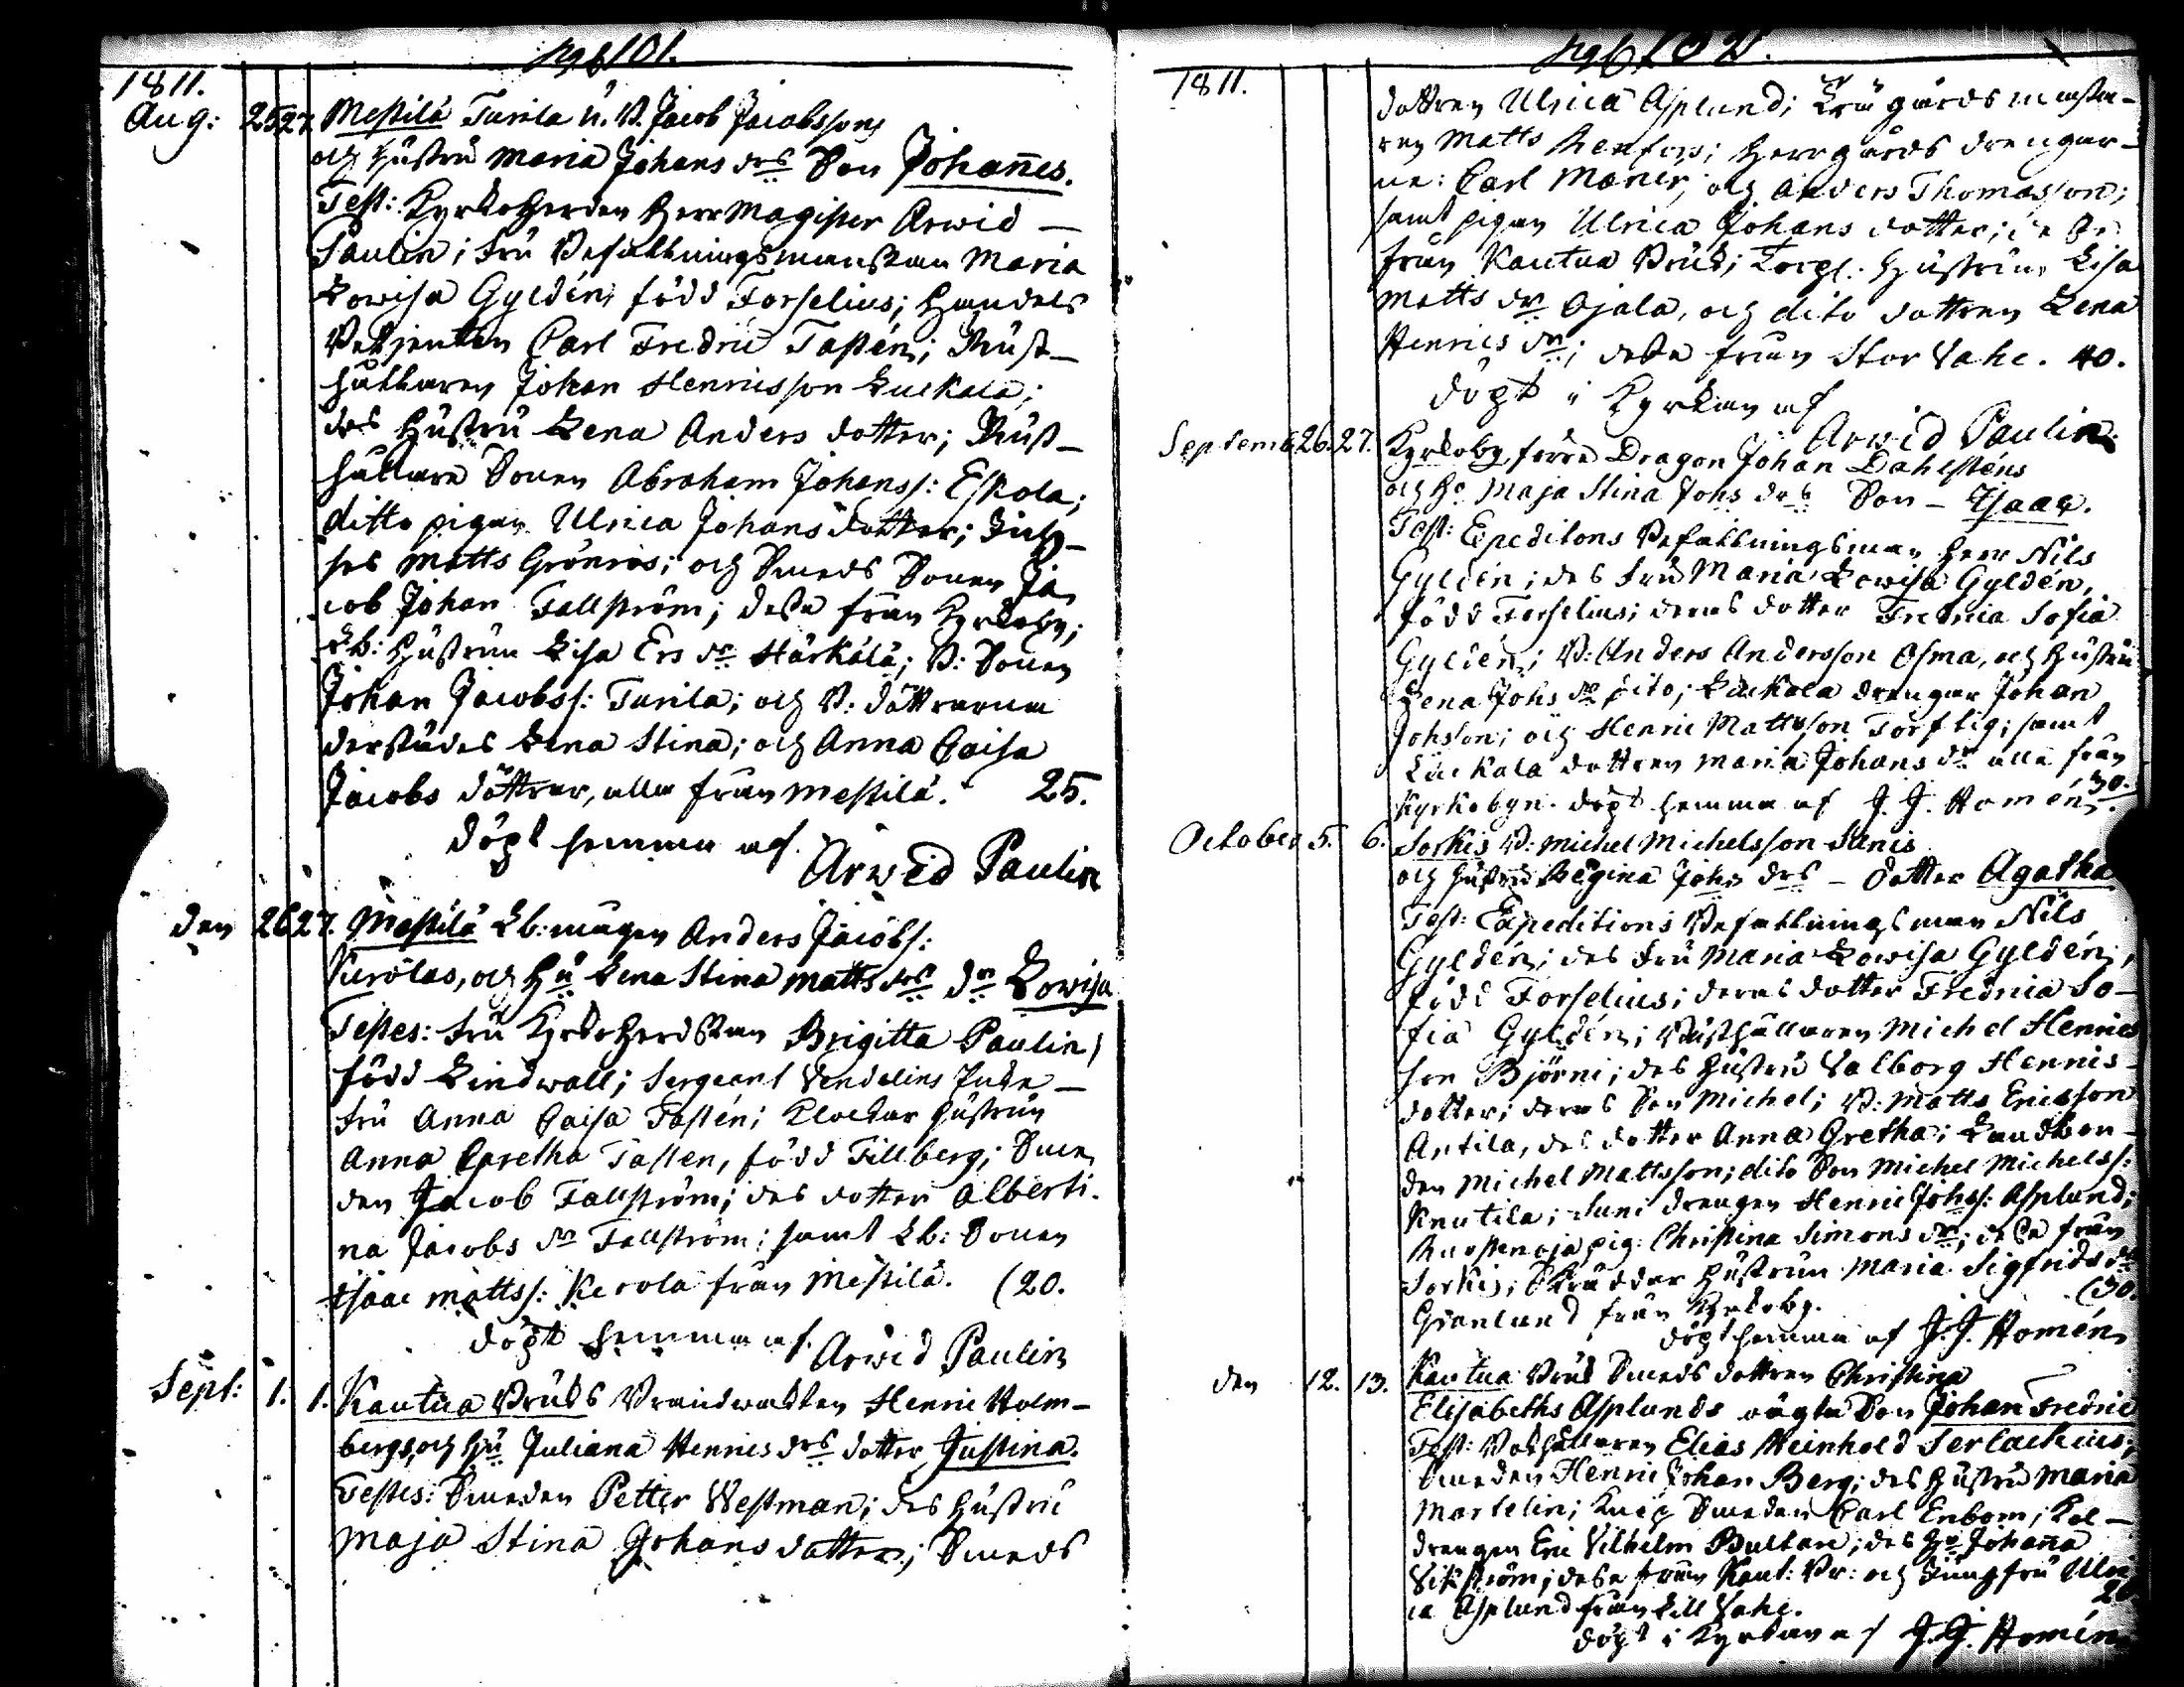 pag 101.
1811.
Aug: 25 27. Mestilä Turila u. B. Jacob Jacobssons
och Hustru Maria Johans drs Son Johannes.
Test: Kyrkoherden Herr Magister Arwid
Paulin; Fru Befallningsmanskan Maria
Lowisa Gyldén, född Forselius; Handels
Betjenten Carl Fredric Tasten; Rust-
hållaren Johan Henricsson Luckala;
des Hustru Lena Anders dotter; Rust-
hållare Sonen Abraham Johanss: Eskola;
ditto pigan Ulrica Johans dotter;
Matts Grönros; och Smeds Sonen Ja
cob Johan Fallström; desse från Kyrkoby;
Lb: Hustrun Lisa Ers dr Härkälä; B: Sonen
Johan Jacobss: Turila; och B: döttrarna
derstädes Lena Stina; och Anna Caisa
Jacobs döttrar, alla från Mestilä. 25.
döpt hemma af
Arwid Paulin
den 26 27. Mestilä Lb: mågen Anders Jacobs:
Kerolas, och Hu Lena Stina Matts drs dr Lowisa
Testes: Fru Kyrkoherdskan Brigitta Paulin,
född Lindwall; Sergeant Vendelins Enke-
fru Anna Caisa Tastén; Klockar Hustrun
Anna Gretha Tasten, född Tillberg; Sme
den Jacob Fallström; des dotter Alberti-
na Jacobs dr Fallström; samt Lb: Sonen
Isaac Mattss: Kerola från Mestilä. (20.
döpt hemma af Arwid Paulin
Sept: 1. 1. Kautua Bruks Brandwakten Henric Holm-
bergs, och Hu Juliana Henrics drs dotter Justina.
Testes: Smeden Petter Westman; des Hustru
Maja Stina Johans dotter; Smeds
pag 102.
1811.
dottren Ulrica Asplund; Trägårdsmästa-
ren Matts Renfors; Herrgårds drengar-
ne: Carl Maner, och Anders Thomasson;
samt pigan Ulrica Johans dotter; desse
från Kautua Bruk; Torp: Hustrun Lisa
Matts dr Ojala, och dito dottren Lena
Henrics dr; desse från Stor Vahe. 40.
döpt i Kyrkan af
Arwid Paulin
Septemb 26. 27. Kyrkoby, förre Dragon Johan Dahlsténs
och Hu Maja Stina Johs drs Son - Isaac.
Test: Expeditons Befallningsman Herr Nils
Gyldén; des Fru Maria Lowisa Gyldén,
född Forselius; deras dotter Fredrica Sofia
Gyldén; B: Anders Andersson Osma, och Hustru
Lena Johs dr dito; Luckala drengar Johan
Johsson; och Henric Mattsson Torftig; samt
Luckala dottren Maria Johans dr alla från
Kyrkobyn. döpt hemma af J. J. Homén. 30.
October 5. 6. Sorkis B: Michel Michelsson Stenis
och Hustru Regina Johs drs - dotter Agatha
Test: Expeditions Befallningsman Nils
Gyldén; des Fru Maria Lowisa Gyldén,
född Forselius; deras dotter Fredrica So-
fia Gyldén; Rusthållaren Michel Henrics
son Björni; des Hustru Valborg Henrics-
dotter; deras Son Michel; B: Matts Ericsson
Antila, des dotter Anna Gretha; Landbon-
den Michel Mattsson; dito Son Michel Michelss:
Knutila; Juni drengen Henric Johss: Asplund;
pig: Christina Simons dr; desse från
Sorkis; Skräddar Hustrun Maria Sigfrids dr
Grönlund från Kyrkoby. (30.
döpt hemma af J. J. Homén
den 12. 13. Kautua Bruk Smeds dottren Christina
Elisabeths Asplunds oägta Son Johan Fredric
Test: Bokhållaren Elias Reinhold Serlachius;
Smeden Henric Johan Berg; des Hustru Maria
Martelin; Knip Smeden Carl Enbom; Kol-
drengen Eric Vilhelm Bultare; des Hu Johanna
Vikström; desse från Kaut: Br: och Jungfru Ulri
ca Asplund från Lill Vahe. 20
döpt i Kyrkan af J. J. Homén